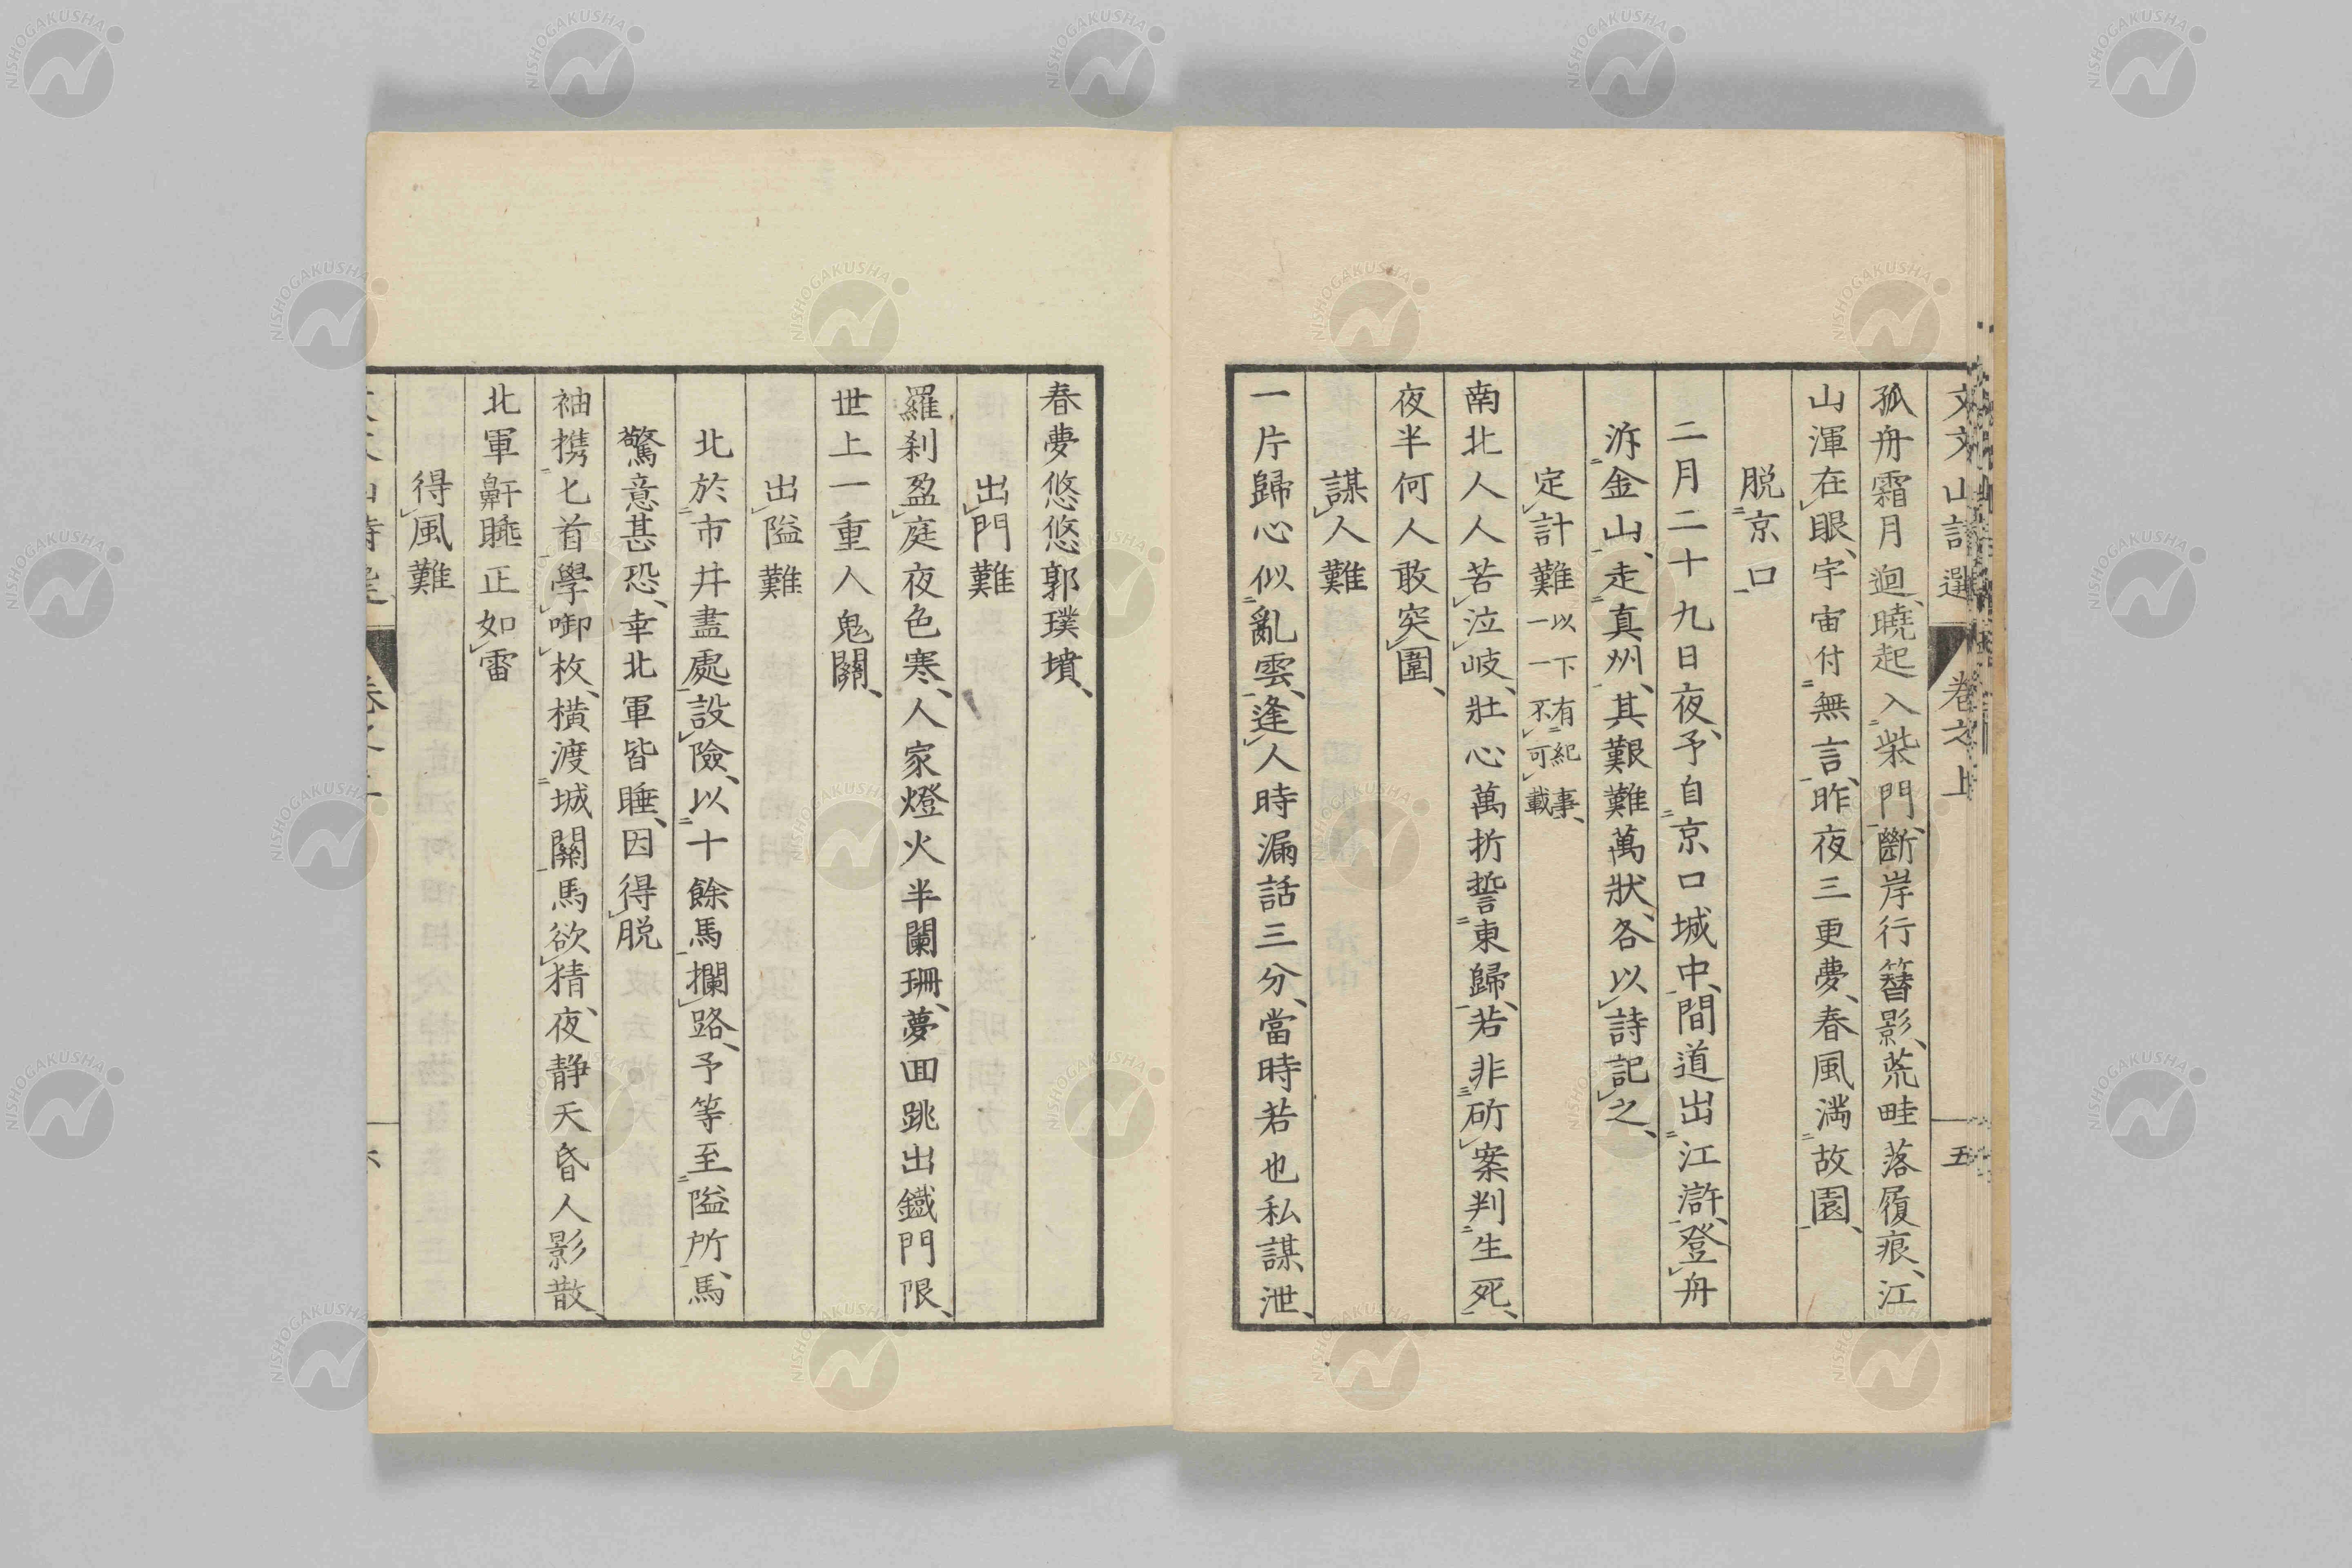 文文山詩選 卷之上 五
孤舟霜月迥、曉起入柴門、斷岸行簪影、荒畦落履痕、江
山渾在眼、宇宙付無言、昨夜三更夢、春風滿故園、
脫京口
二月二十九日夜、予自京口城中、間道出江滸、登舟
泝金山、走真州、其艱難萬狀、各以詩記之、
定計難 以下有紀事、一一不可載
南北人人苦泣岐、壯心萬折誓東歸、若非斫案判生死、
夜半何人敢突圍、
謀人難
一片歸心似亂雲、逢人時漏話三分、當時若也私謀泄、
春夢悠悠郭璞墳、
出門難
羅刹盈庭夜色寒、人家燈火半闌珊、夢回跳出鐵門限、
世上一重人鬼關、
出隘難
北於市井盡處設險、以十餘馬攔路、予等至隘所、馬
驚意甚恐、幸北軍皆睡、因得脫
袖携匕首學啣枚、橫渡城關馬欲猜、夜靜天昏人影散、
北軍鼾睡正如雷
得風難
NISHOGAKUSHA